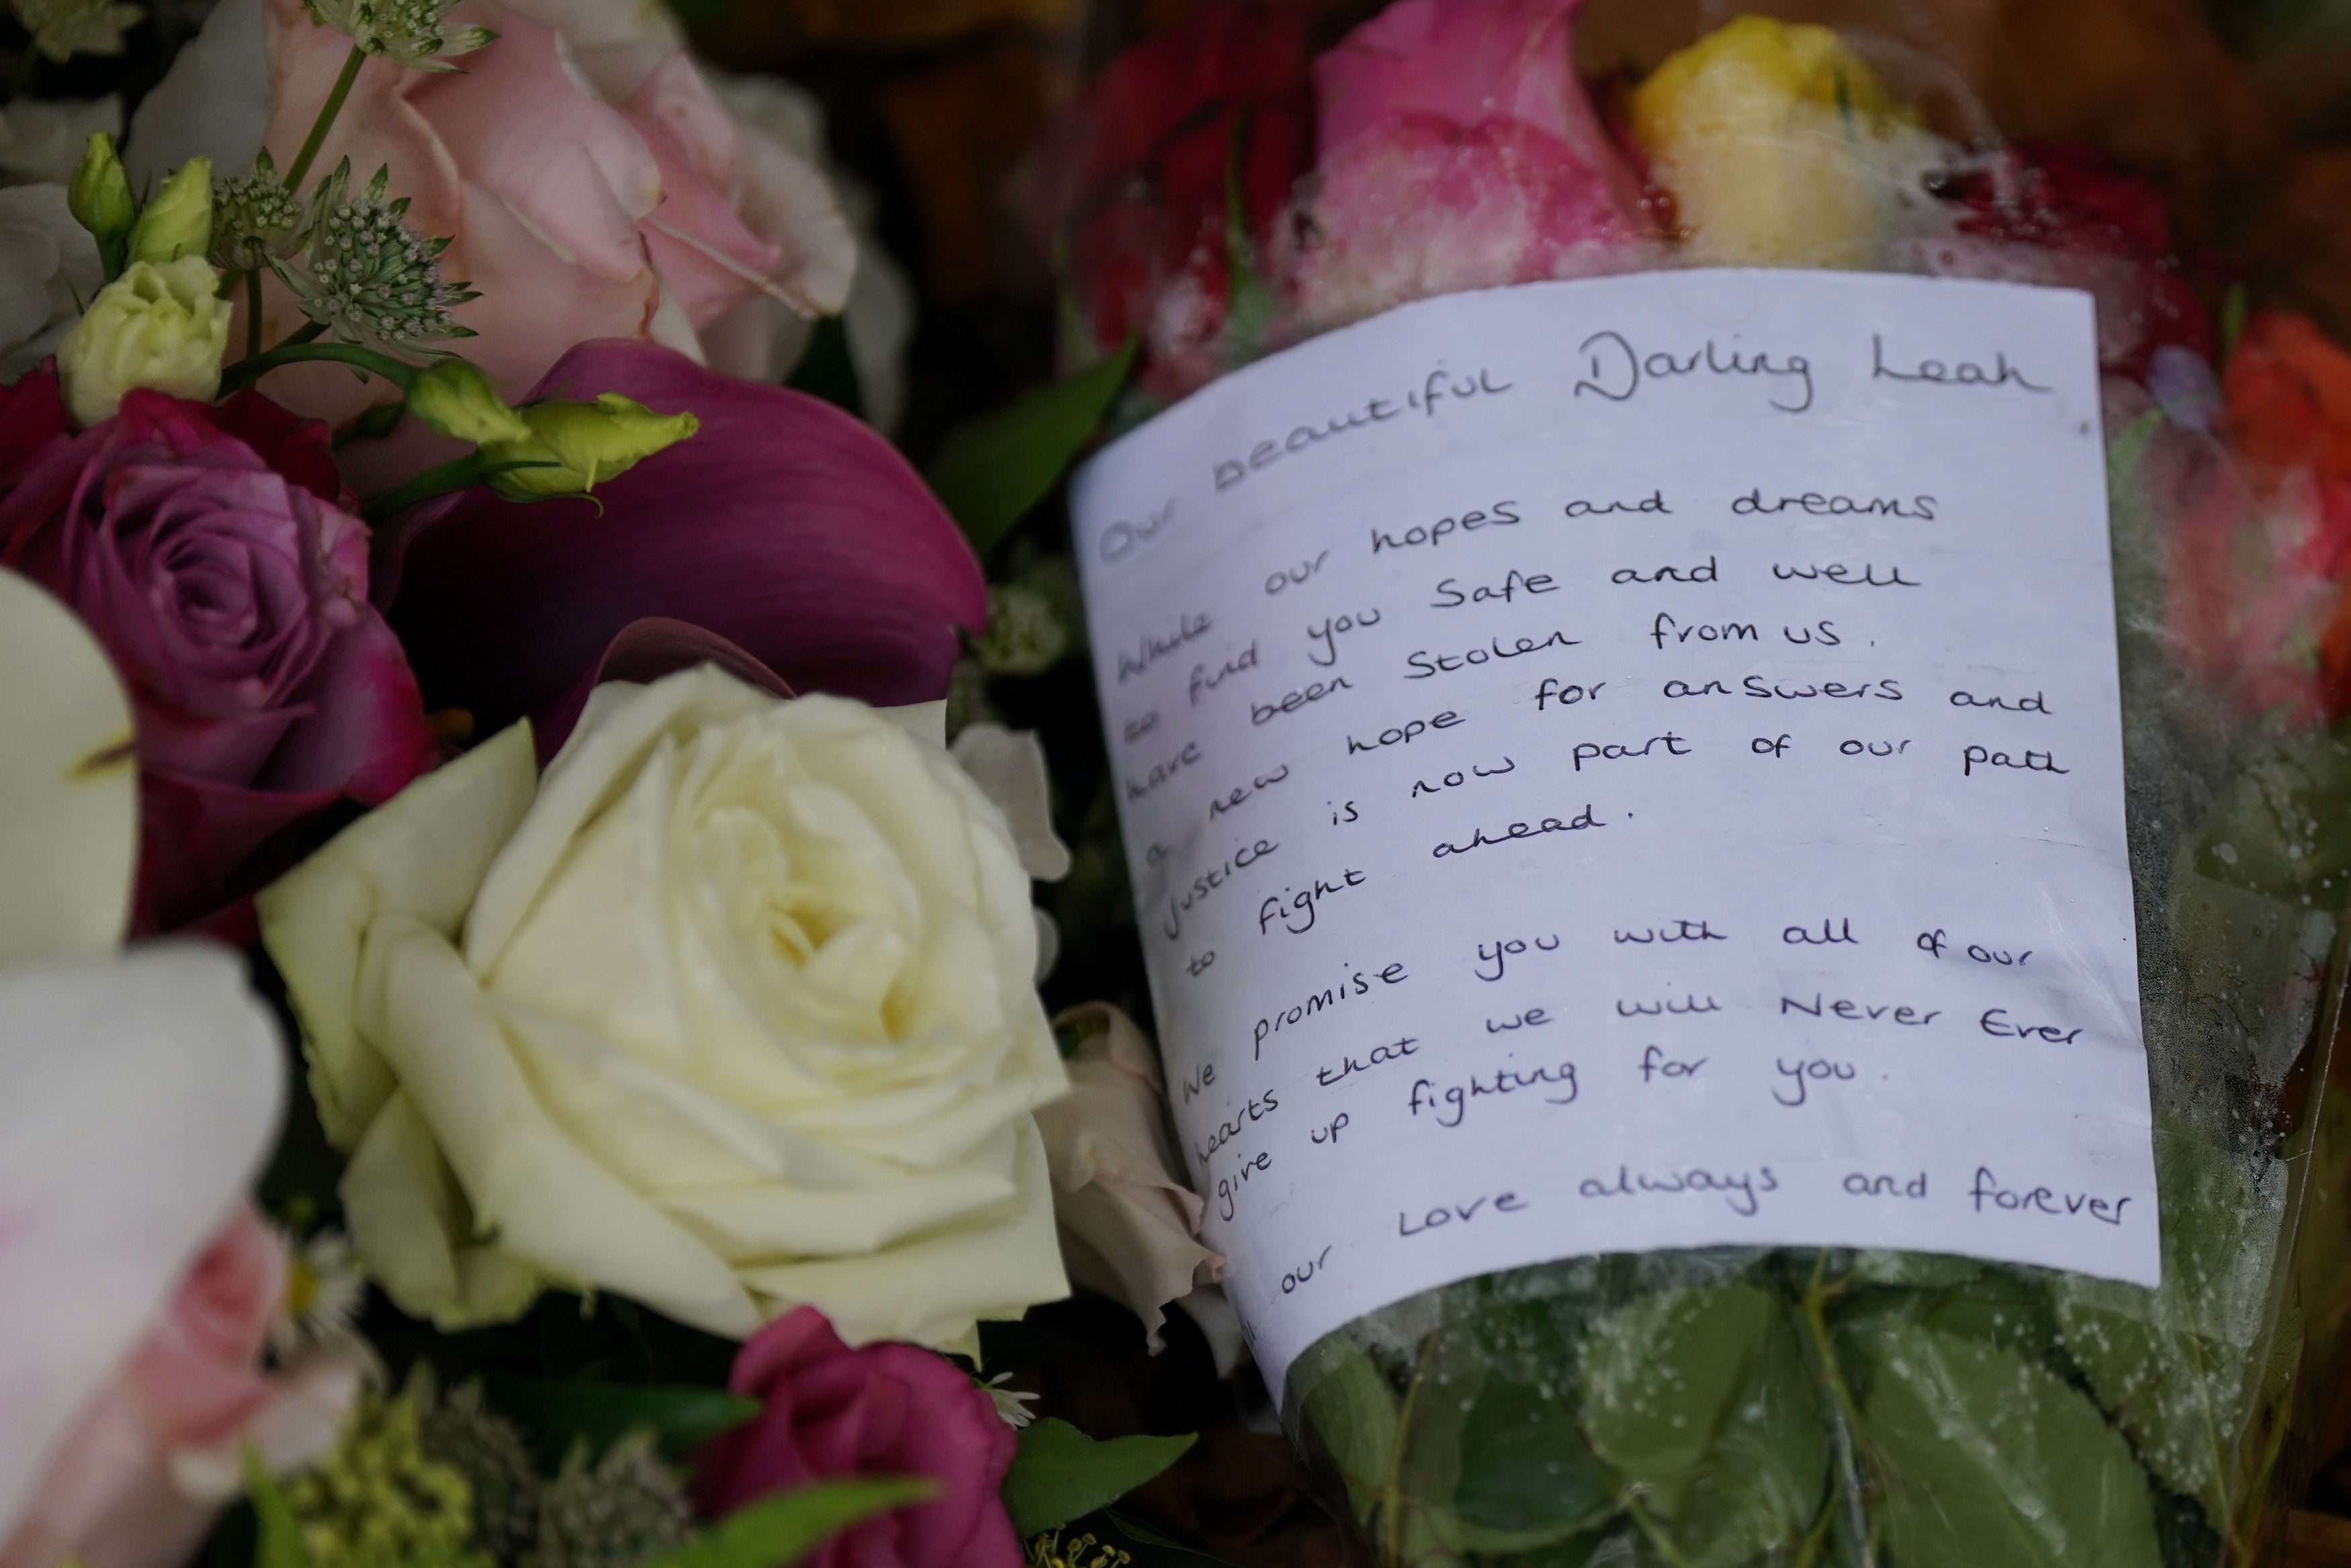 Our beautiful Darling Leah
While our hopes and dreams
to find you Safe and well
have been Stolen from us.
a new hope for answers and
Justice is now part of our path
to fight ahead.
We promise you with all of our
hearts that we will Never Ever
give up fighting for you.
our Love always and forever